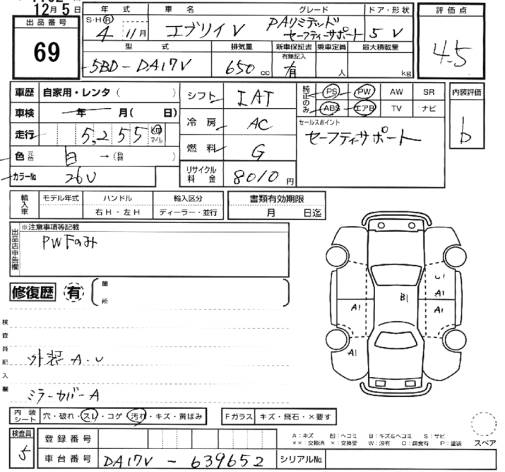 12月5日
出品番号 69
年式 S・H・R 4年 11月 車名 エブリイV グレード PAリミテッド セーフティサポート ドア・形状 5V 評価点 4.5
型式 5BD-DA17V 排気量 650cc 新車保証書 有無記入 有 乗車定員 人 最大積載量 kg
車歴 自家用・レンタ( )
車検 年 月( 日)
走行 5,255 km マイル
色 元色 白 → (替色 )
カラーNo 26V
シフト IAT
冷房 AC
燃料 G
リサイクル料金 8010円
純正のみ PS PW AW SR
ABS エアB TV ナビ
セールスポイント
セーフティサポート
内装評価 b
輸入車 モデル年式 年 ハンドル 右H・左H 輸入区分 ディーラー・並行
書類有効期限 月 日迄
出品店申告欄 ※注意事項等記載
PWFのみ
修復歴 有 箇所
検査員記入欄
外装A.U
ミラーカバーA
A1 B1 U1 A1 A1 A1
内装シート 穴・破れ・スレ・コゲ・汚れ・キズ・黄ばみ Fガラス キズ・飛石・×要す
A:キズ U:ヘコミ B:キズ&ヘコミ S:サビ
××:交換済 ×:要交換 W:波有 C:腐食有 P:塗装
スペア
検査員 5 登録番号
車台番号 DA17V-639652 シリアルNo.